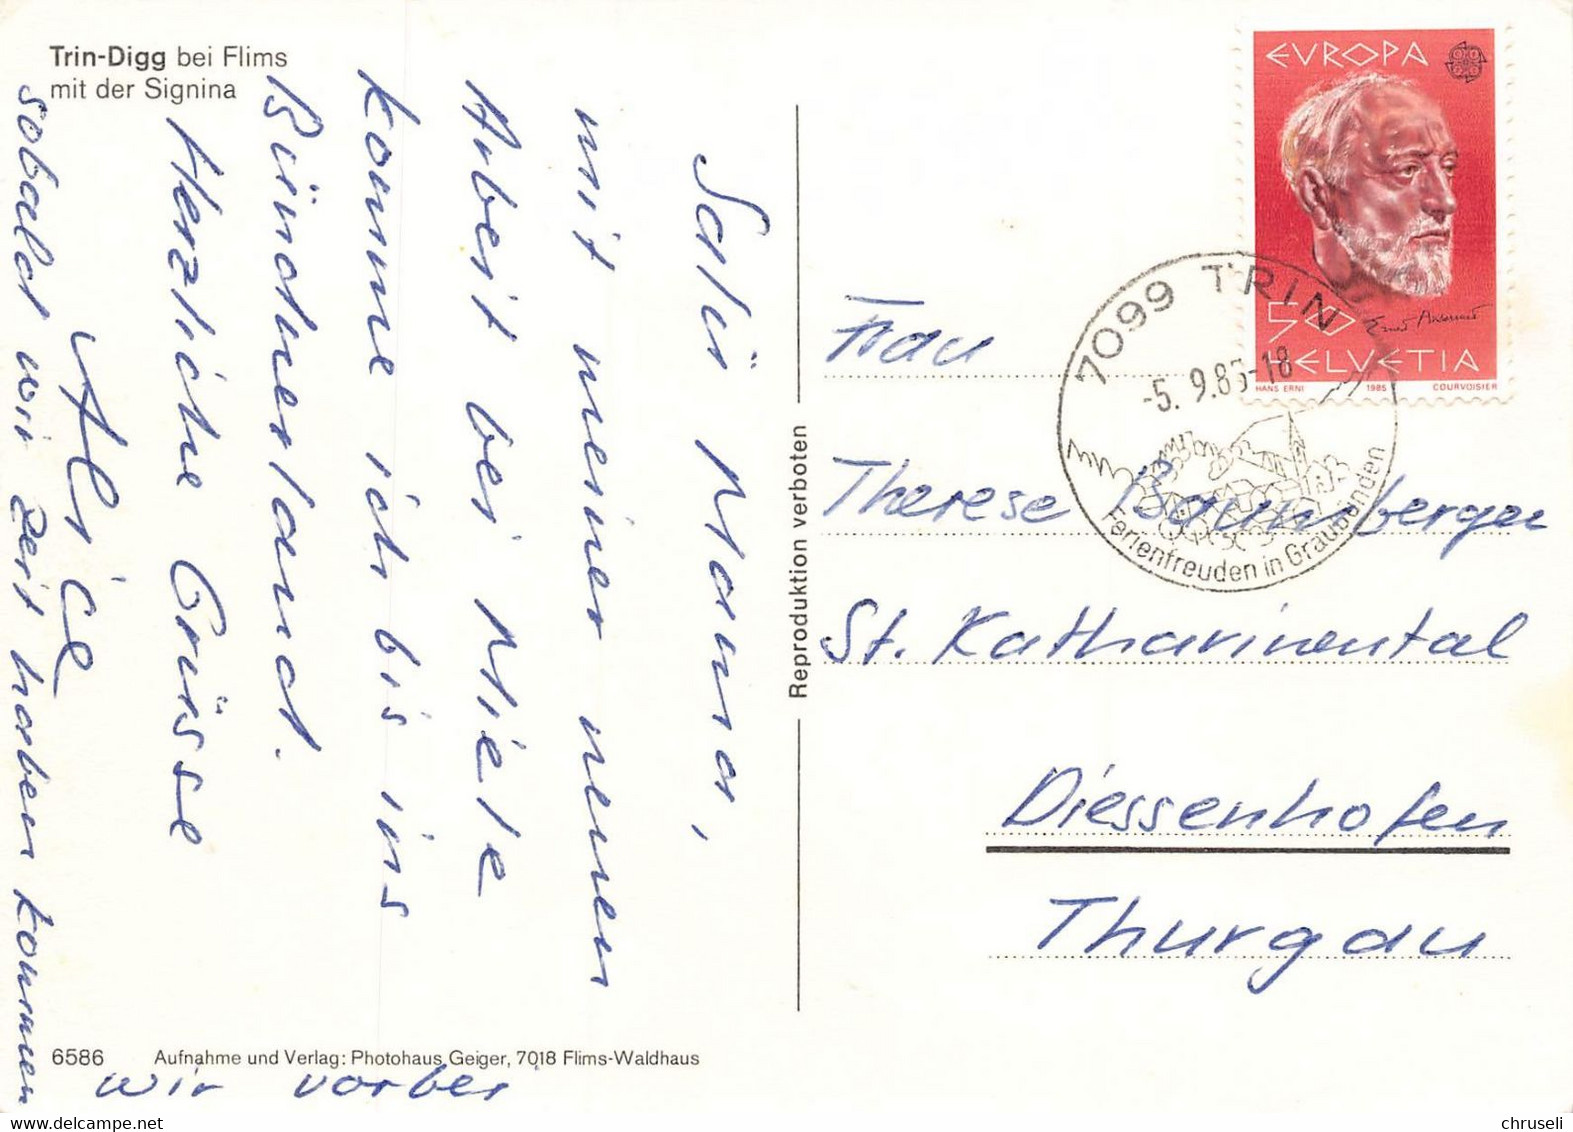 Trin-Digg bei Flims
mit der Signina
Salü Mama,
mit meiner neuen
Arbeit bei Miele
komme ich bis ins
Bündnerland.
Herzliche Grüsse
Alice
sobald wir Zeit haben kommen
wir vorbei
6586 Aufnahme und Verlag: Photohaus Geiger, 7018 Flims-Waldhaus
Reproduktion verboten
EVROPA
50
HELVETIA
HANS ERNI 1985 COURVOISIER
7099 TRIN
-5. 9.85-18
Ferienfreuden in Graubünden
Frau
Therese Baumberger
St. Katharinental
Diessenhofen
Thurgau
chruseli